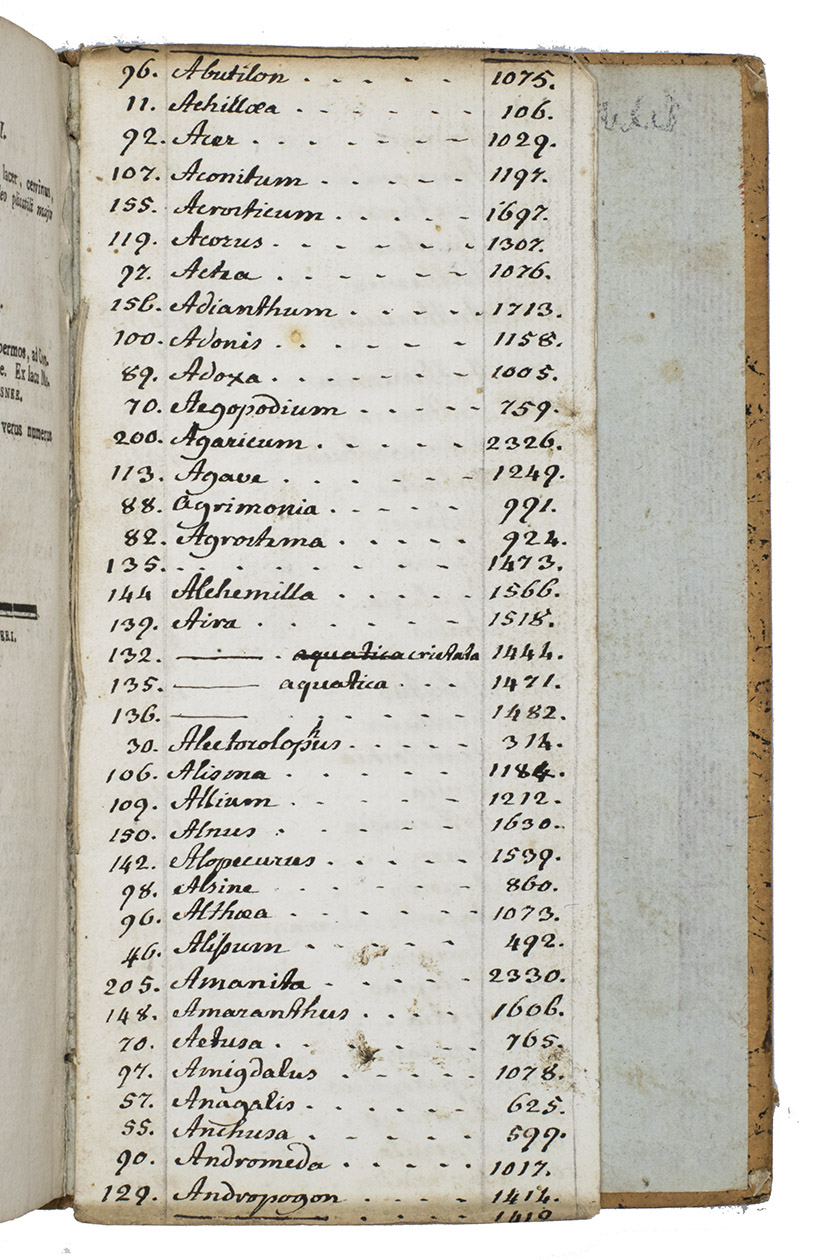 I.
lacer, cervinus,
permos, ad
e. Ex lacu
SNER.
verus numerus
ERI.
96. Abutilon . - - - - 1075.
11. Achillœa - - - - - 106.
92. Acer . - - - - - 1029.
107. Aconitum - - - - - 1197.
155. Acrosticum . . . . - 1697.
119. Acorus - - - - - - 1307.
97. Actæa . - - - - - 1076.
156. Adianthum - - - - - 1713.
100. Adonis - - - - - 1158.
89. Adoxa . - - - - - 1005.
70. Aegopodium - - - - - 759.
200. Agaricum . - - - - 2326.
113. Agave . - - - - - 1249.
88. Agrimonia . - - - - 991.
82. Agrostema . . . . . 924.
135. . - - - - - - - 1473.
144 Alchemilla . . . . . 1566.
139. Aira . - - - - - 1518.
132. ——— . aquatica cristata 1444.
135. ——— aquatica . - - 1471.
136. ——— . . - - - - 1482.
30. Alectorolophus . . . . . 314.
106. Alisma . - - - - 1184.
109. Allium . - - - - 1212.
150. Alnus . - - - - - 1630.
142. Alopecurus . - - - - 1539.
98. Alsine . - - - - - 860.
96. Althœa - - - - - - 1073.
46. Alissum - - - - - 492.
205. Amanita - - - - - 2330.
148. Amaranthus . . - - 1606.
70. Aetusa . - - - - - 765.
97. Amigdalus . - - - - 1078.
57. Anagalis . . - - - - 625.
55. Anchusa . - - - - 599.
90. Andromeda . . . . . 1017.
129. Andropogon . . . - 1414.